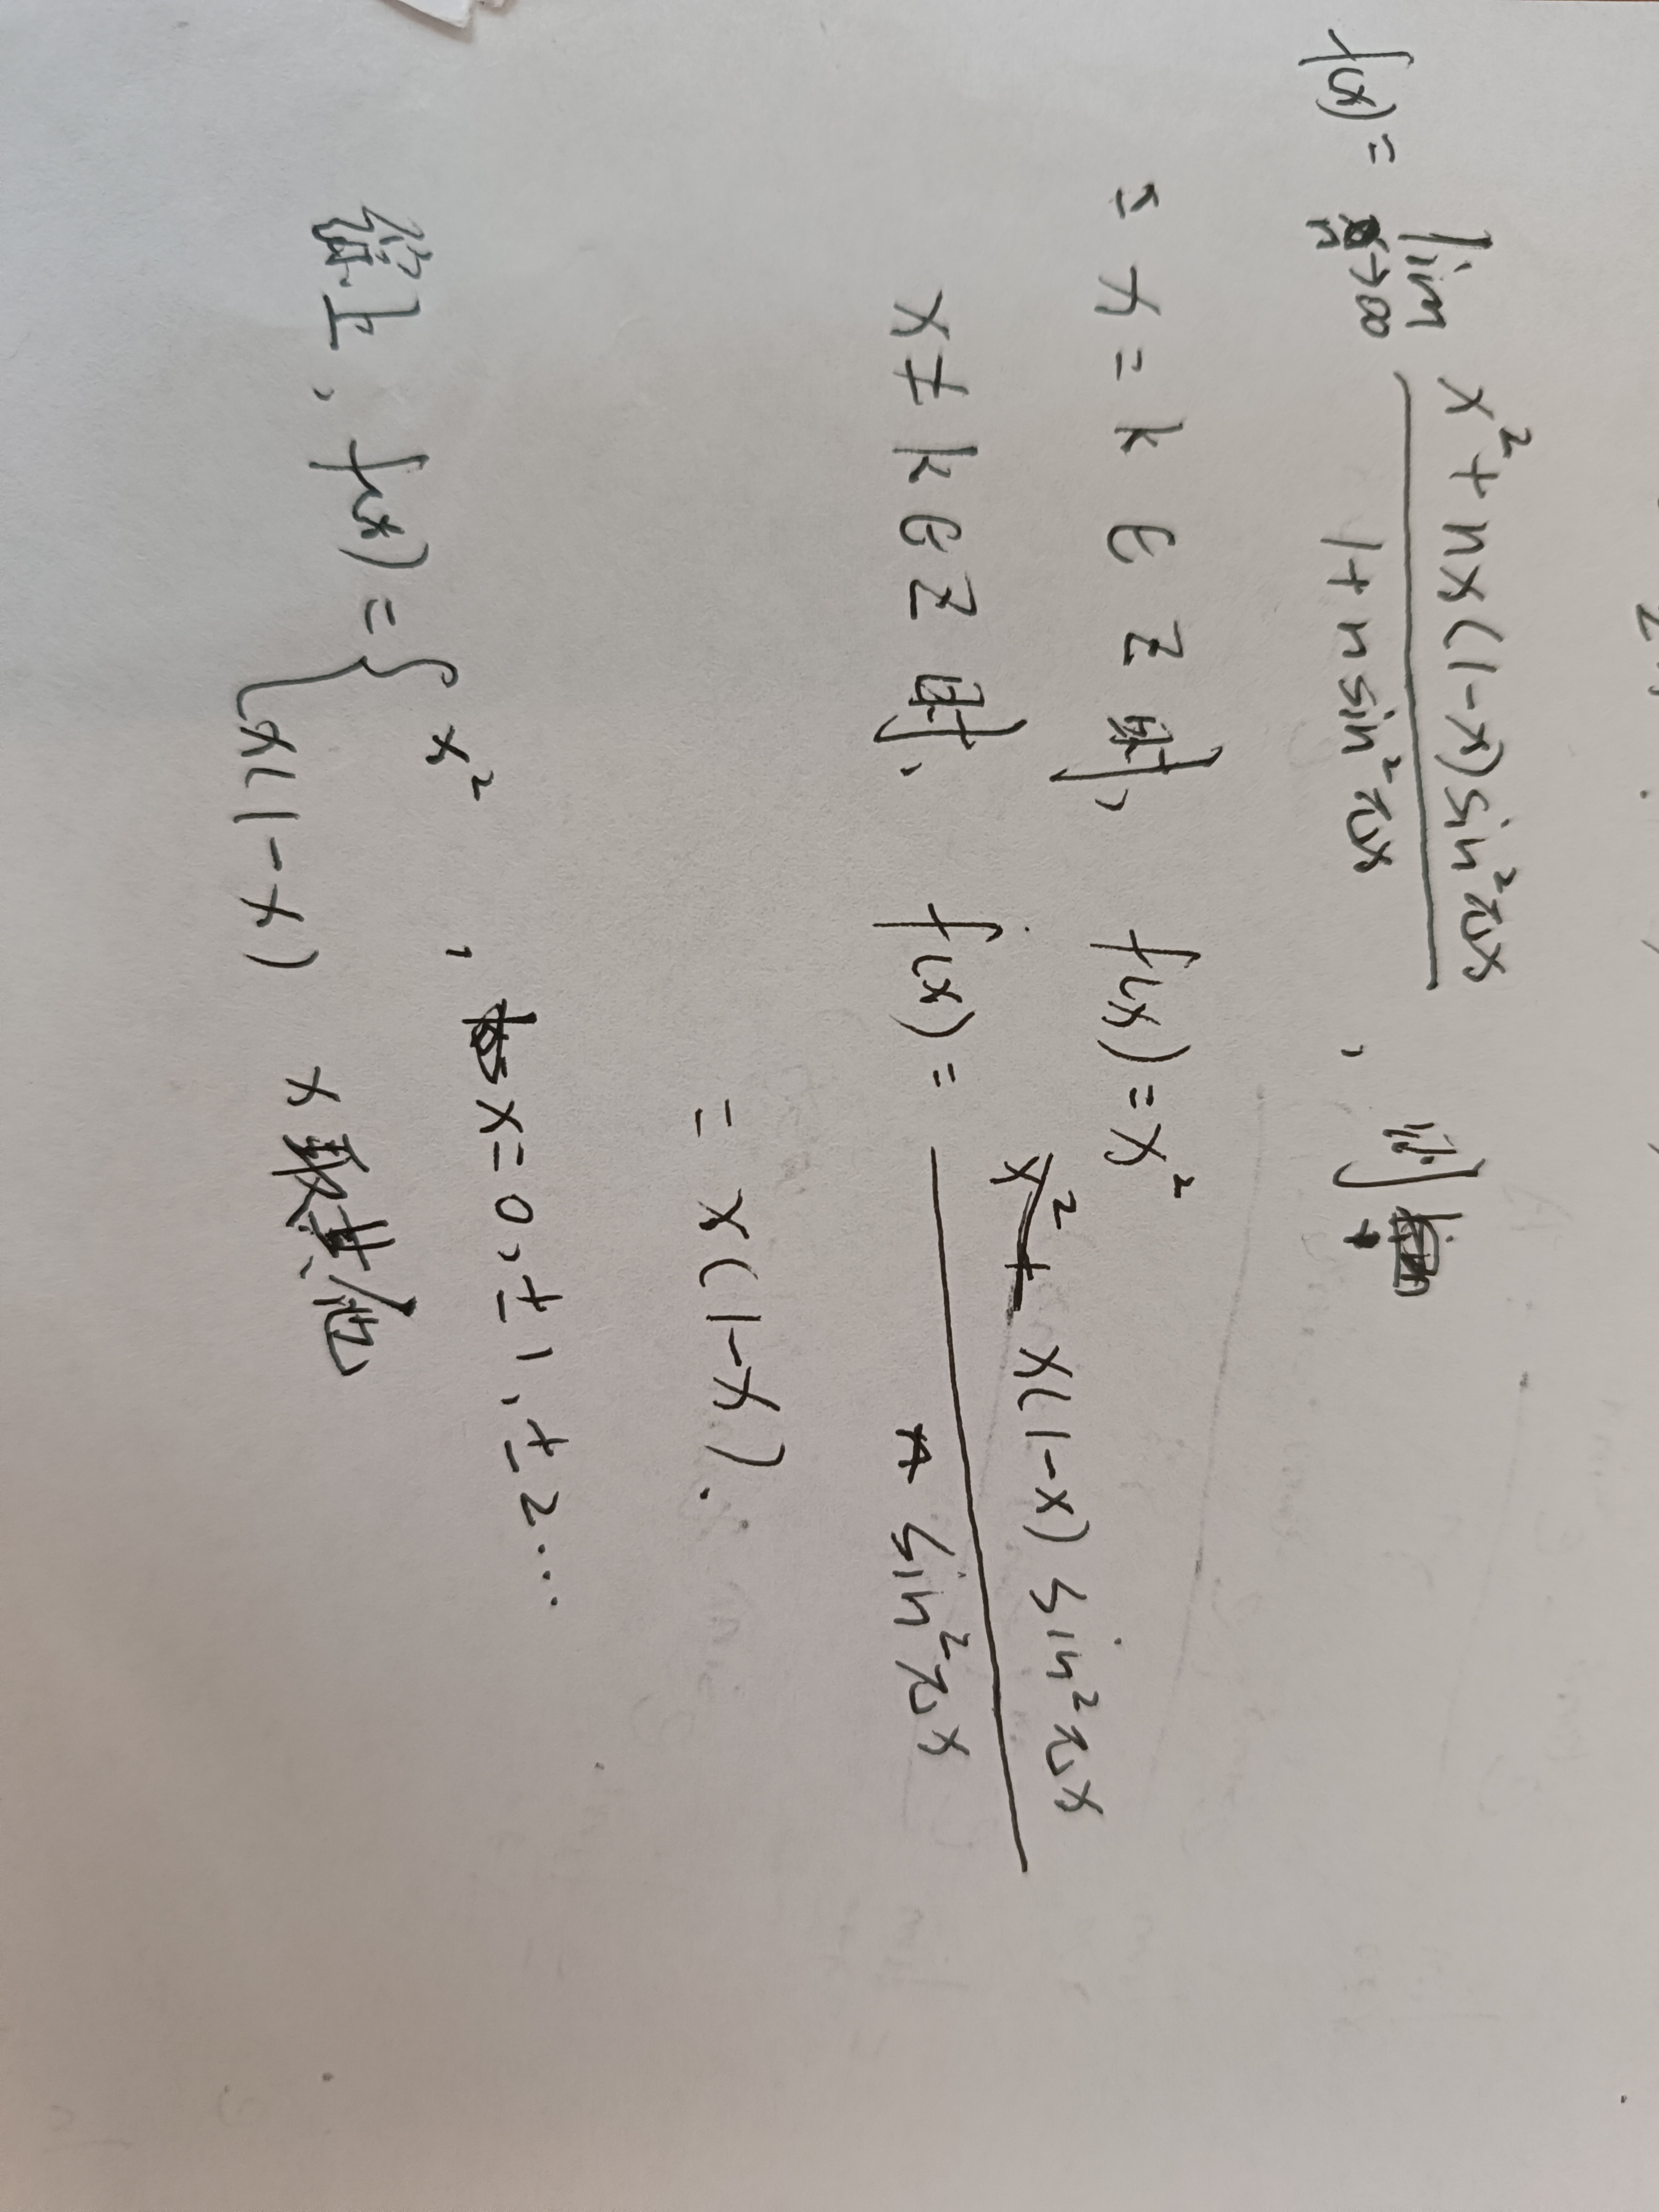 f(x) = lim n→∞ x²+nx(1-x)sin²πx / 1+n sin²πx , 则
= x = k ∈ Z 时, f(x) = x²
x ≠ k ∈ Z 时, f(x) = x²+ x(1-x) sin²πx / n sin²πx
= x(1-x).
综上, f(x) = { x² , x=0, ±1, ±2...
x(1-x) x取其他